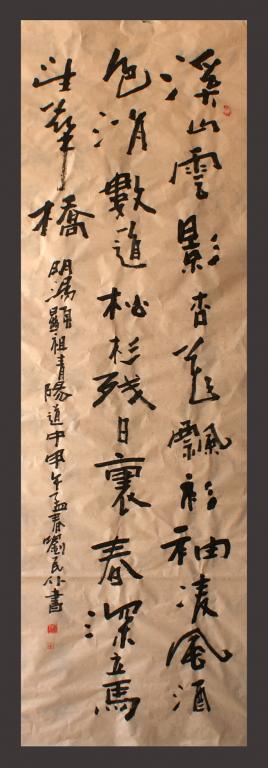 溪山雲影杏花飄衫袖凌風酒
色消數道松杉殘日裏春深立馬
望華橋
明湯顯祖青陽道中甲午孟春劉民竹書